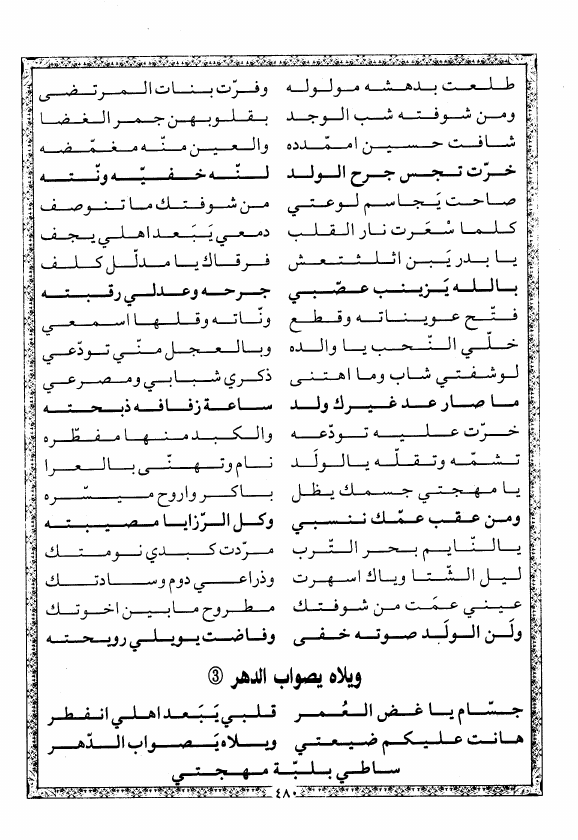 طلعت بدهشه مولوله وفرّت بنات المرتضى
ومن شوفته شب الوجد بقلوبهن جمر الغضا
شافت حسين امّدده والعين منّه مغمّضه
خرّت تجس جرح الولد لنّه خفيّه ونّته
صاحت يَجاسم لوعتي من شوفتك ما تنوصف
كلما سْعَرت نار القلب دمعي يَبَعد اهلي يجف
يا بدر يَبن اثلثتعش فرقاك يا مدلّل كلف
بالله يَزينب عصّبي جرحه وعدلي رقبته
فتّح عويناته وقطع ونّاته وقلها اسمعي
خلّي النّحب يا والده وبالعجل منّي تودّعي
لوشفتي شاب وما اهتنى ذكري شبابي ومصرعي
ما صار عد غيرك ولد ساعة زفافه ذبحته
خرّت عليه تودّعه والكبد منها مفطّره
تشمّه وتقلّه يالولَد نام وتهنّى بالعرا
يا مهجتي جسمك يظل باكر واروح ميسّره
ومن عقب عمّك ننسبي وكل الرّزايا مصيبته
يالنّايم بحر التّرب مرّدت كبدي نومتك
ليل الشّتا وياك اسهرت وذراعي دوم وسادتك
عيني عمَت من شوفتك مطروح مابين اخوتك
ولَن الولَد صوته خفى وفاضت يويلي رويحته
ويلاه يصواب الدهر ③
جسّام يا غض العُمر قلبي يَبَعد اهلي انفطر
هانت عليكم ضيعتي ويلاه يَصواب الدّهر
ساطي بلبّة مهجتي
٤٨٠